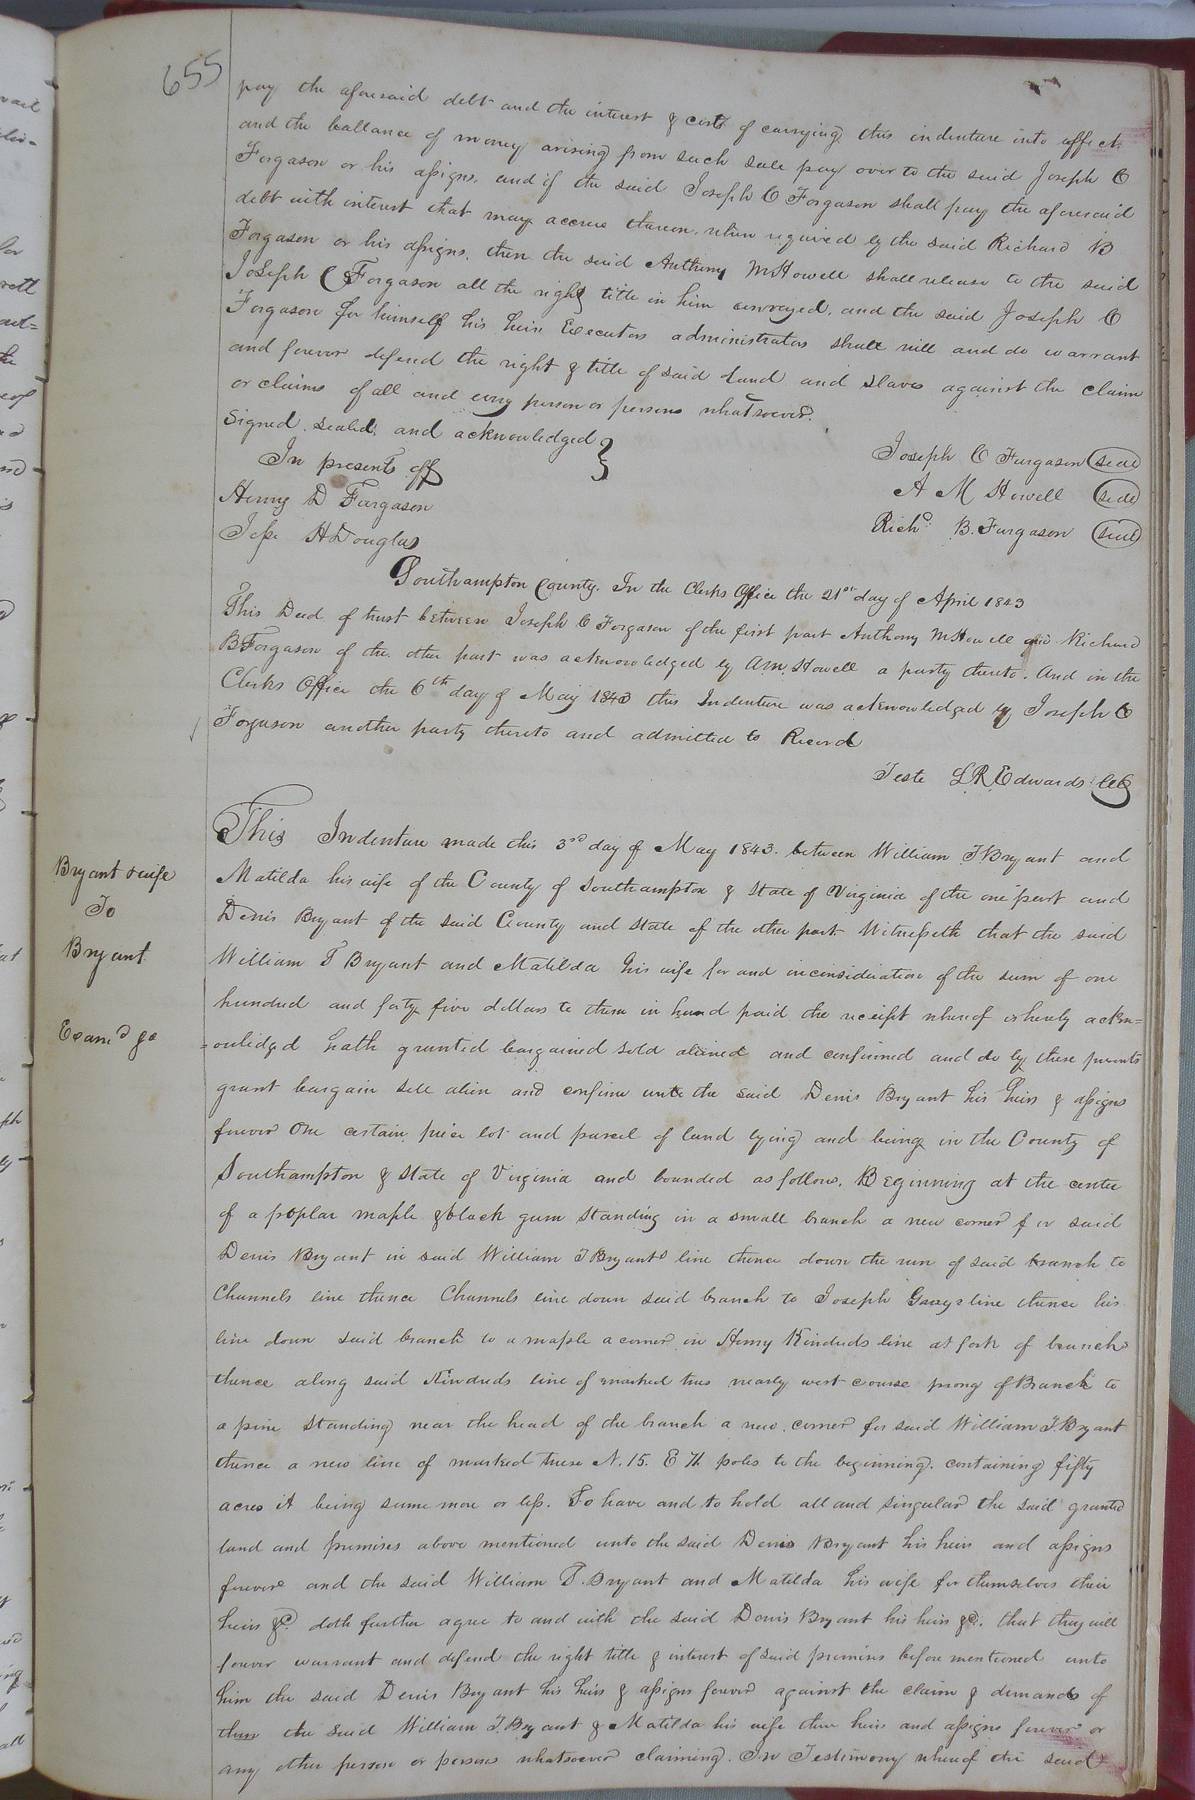 655
pay the aforesaid debt and the interest & costs of carrying this indenture into affect
and the ballance of money arising from such sale pay over to the said Joseph C
Forgason or his assigns. and if the said Joseph C Forgason shall pay the aforesaid
debt with interest that may accrue thereon when required by the said Richard B
Forgason or his assigns. then the said Anthony M Howell shall release to the said
Joseph C Forgason all the right title in him conveyed. and the said Joseph C
Forgason for himself his heirs Executors administrators shall will and do warrant
and forever defend the right & title of said land and slaves against the claim
or claims of all and every person or persons whatsoever.
Signed. sealed. and acknowledged }
In presents off
Joseph C Furgason (seal)
Henry D Fargason
A M Howell (seal)
Jesse H Douglas
Richd. B. Furgason (seal)
Southampton County. In the Clerks Office the 21st day of April 1843
This Deed of trust between Joseph C Forgason of the first part Anthony M Howell and Richard
B Forgason of the other part was acknowledged by A M. Howell a party thereto. And in the
Clerks Office the 6th day of May 1843 this Indenture was acknowledged by Joseph C
Forguson another party thereto and admitted to Record
Teste L R Edwards CC
Bryant & wife
To
Bryant
Examd &c
This Indenture made this 3rd day of May 1843. between William T Bryant and
Matilda his wife of the County of Southampton & State of Virginia of the one part and
Denis Bryant of the said County and State of the other part Witnesseth that the said
William T Bryant and Matilda his wife for and inconsideration of the sum of one
hundred and forty five dollars to them in hand paid the receipt whereof is hereby ackn=
=owledged hath granted bargained sold aliened and confirmed and do by these presents
grant bargain sell alien and confirm unto the said Denis Bryant his heirs & assigns
forever One certain piece lot and parcel of land lying and being in the County of
Southampton & State of Virginia and bounded as follow. Beginning at the center
of a poplar maple & black gum standing in a small branch a new corner for said
Denis Bryant in said William T Bryants line thence down the run of said branch to
Channels line thence Channels line down said branch to Joseph Grays line thence his
line down said branch to a maple a corner in Henry Kindreds line at fork of branch
thence along said Kindreds line of marked trees nearly west course prong of Branch to
a pine standing near the head of the branch a new corner for said William T. Bryant
thence a new line of marked trees N. 15. E 71 poles to the beginning. containing fifty
acres it being same more or less. To have and to hold all and singular the said granted
land and premises above mentioned unto the said Denis Bryant his heirs and assigns
forever and the said William T. Bryant and Matilda his wife for themselves their
heirs &c. doth further agree to and with the said Denis Bryant his heirs &c. that they will
forever warrant and defend the right title & interest of said premises before mentioned unto
him the said Denis Bryant his heirs & assigns forever against the claim & demands of
them the said William T. Bryant & Matilda his wife their heirs and assigns forever or
any other person or persons whatsoever claiming. In Testimony whereof the said